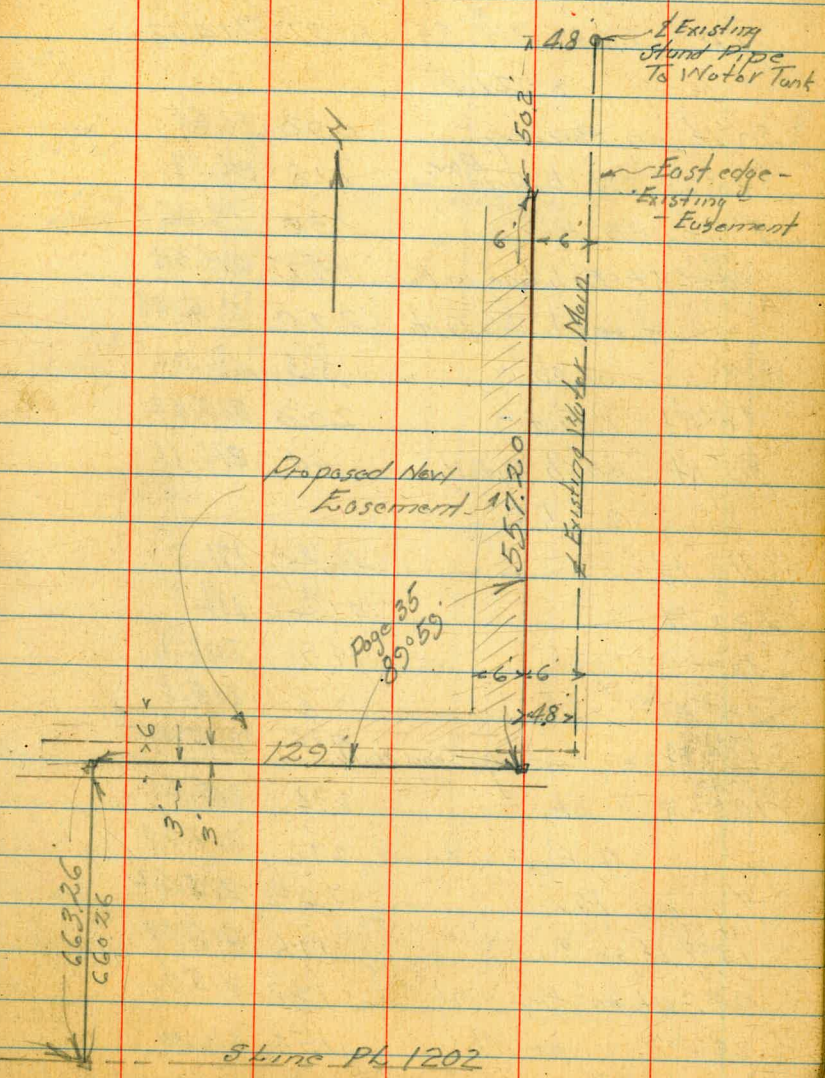 4.8'
℄ Existing
Stand Pipe
To Water Tank
502'
N
East edge -
Existing -
- Easement
6'
6'
℄ Existing Water Main
Proposed New
Easement
557.20
Page 35
89°59'
6'
6'
4.8'
6'
129'
3'
3'
663.26
660.26
S Line PL 1202